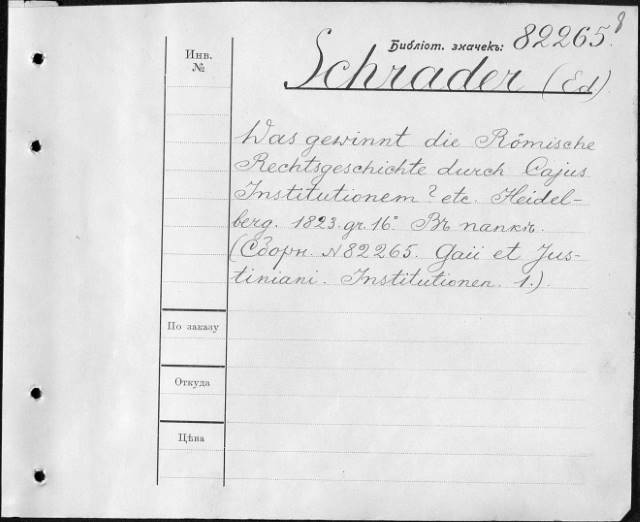 Библіот. значекъ: 82265 8
Инв.
№
Schrader (Ed)
Was gewinnt die Römische
Rechtsgeschichte durch Cajus
Institutionem? etc. Heidel-
berg. 1823. gr. 16°. Въ папкѣ.
(Сборн. №82265. Gaii et Jus-
tiniani. Institutionen. 1.)
По заказу
Откуда
Цѣна